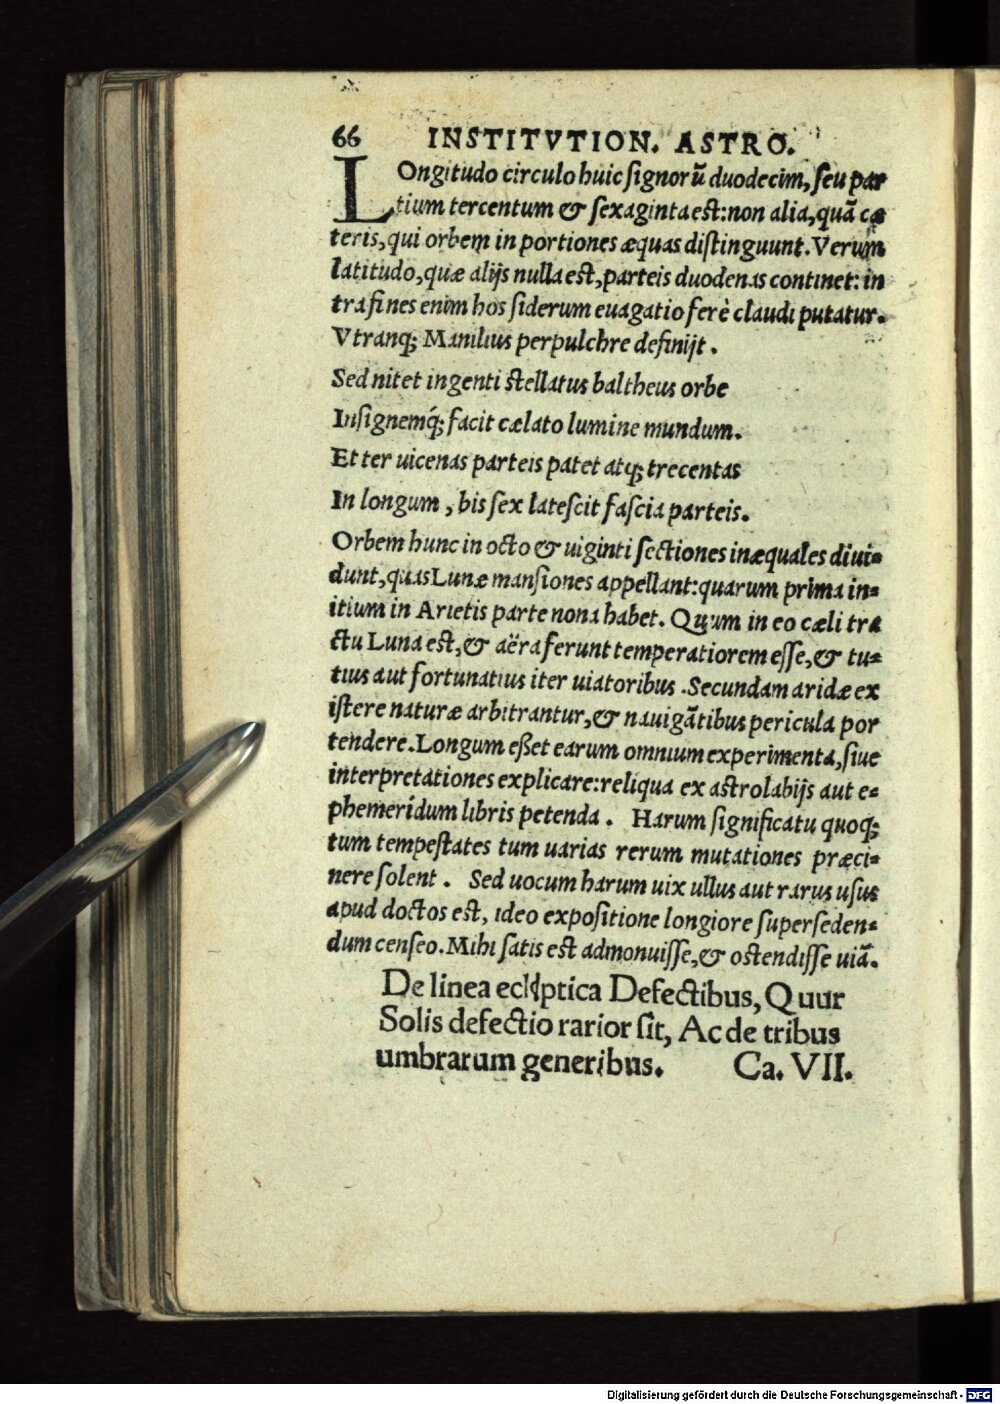 66 INSTITVTION. ASTRO.
LOngitudo circulo huic ſignorũ duodecim, ſeu par
tium tercentum & ſexaginta eſt: non alia, quã cæ
teris, qui orbem in portiones æquas diſtinguunt. Verum
latitudo, quæ alijs nulla eſt, parteis duodenas continet: in
tra fines enim hos ſiderum euagatio ferè claudi putatur.
Vtranq; Manilius perpulchre definijt.
Sed nitet ingenti ſtellatus baltheus orbe
Inſignemq́; facit cælato lumine mundum.
Et ter uicenas parteis patet atq; trecentas
In longum, bis ſex lateſcit faſcia parteis.
Orbem hunc in octo & uiginti ſectiones inæquales diui-
dunt, quas Lunæ manſiones appellant: quarum prima in-
itium in Arietis parte nona habet. Quum in eo cæli tra
ctu Luna eſt, & aëra ferunt temperatiorem eſſe, & tu-
tius aut fortunatius iter uiatoribus. Secundam aridæ ex
iſtere naturæ arbitrantur, & nauigãtibus pericula por
tendere. Longum eßet earum omnium experimenta, ſiue
interpretationes explicare: reliqua ex aſtrolabijs aut e-
phemeridum libris petenda. Harum ſignificatu quoq;
tum tempeſtates tum uarias rerum mutationes præci-
nere ſolent. Sed uocum harum uix ullus aut rarus uſus
apud doctos eſt, ideo expoſitione longiore ſuperſeden-
dum cenſeo. Mihi ſatis eſt admonuiſſe, & oſtendiſſe uiã.
De linea ecliptica Defectibus, Quur
Solis defectio rarior ſit, Ac de tribus
umbrarum generibus. Ca. VII.
Digitalisierung gefördert durch die Deutsche Forschungsgemeinschaft - DFG